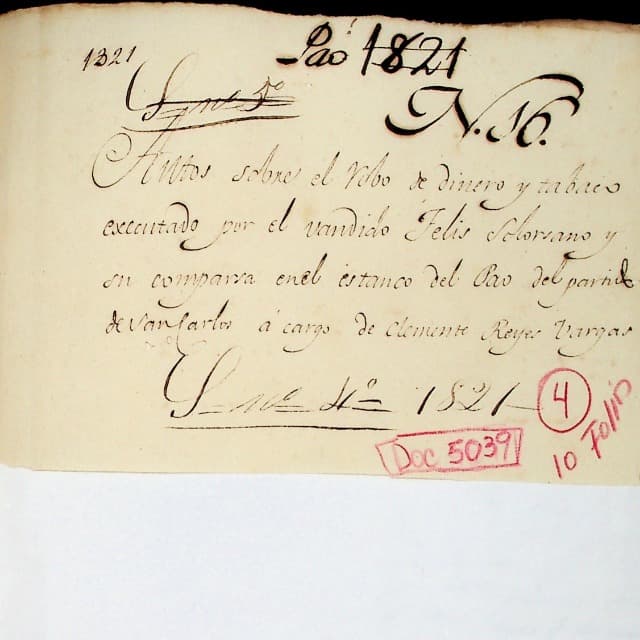 1821
Pao 1821
N. 16.
Autos sobre el Robo de dinero y tabaco
executado por el vandido Felis Solorsano y
su comparsa enel estanco del Pao del partido
de San Carlos á cargo de Clemente Reyes Vargas
Sno nº 4º 1821
4
10 Folios
Doc 5039